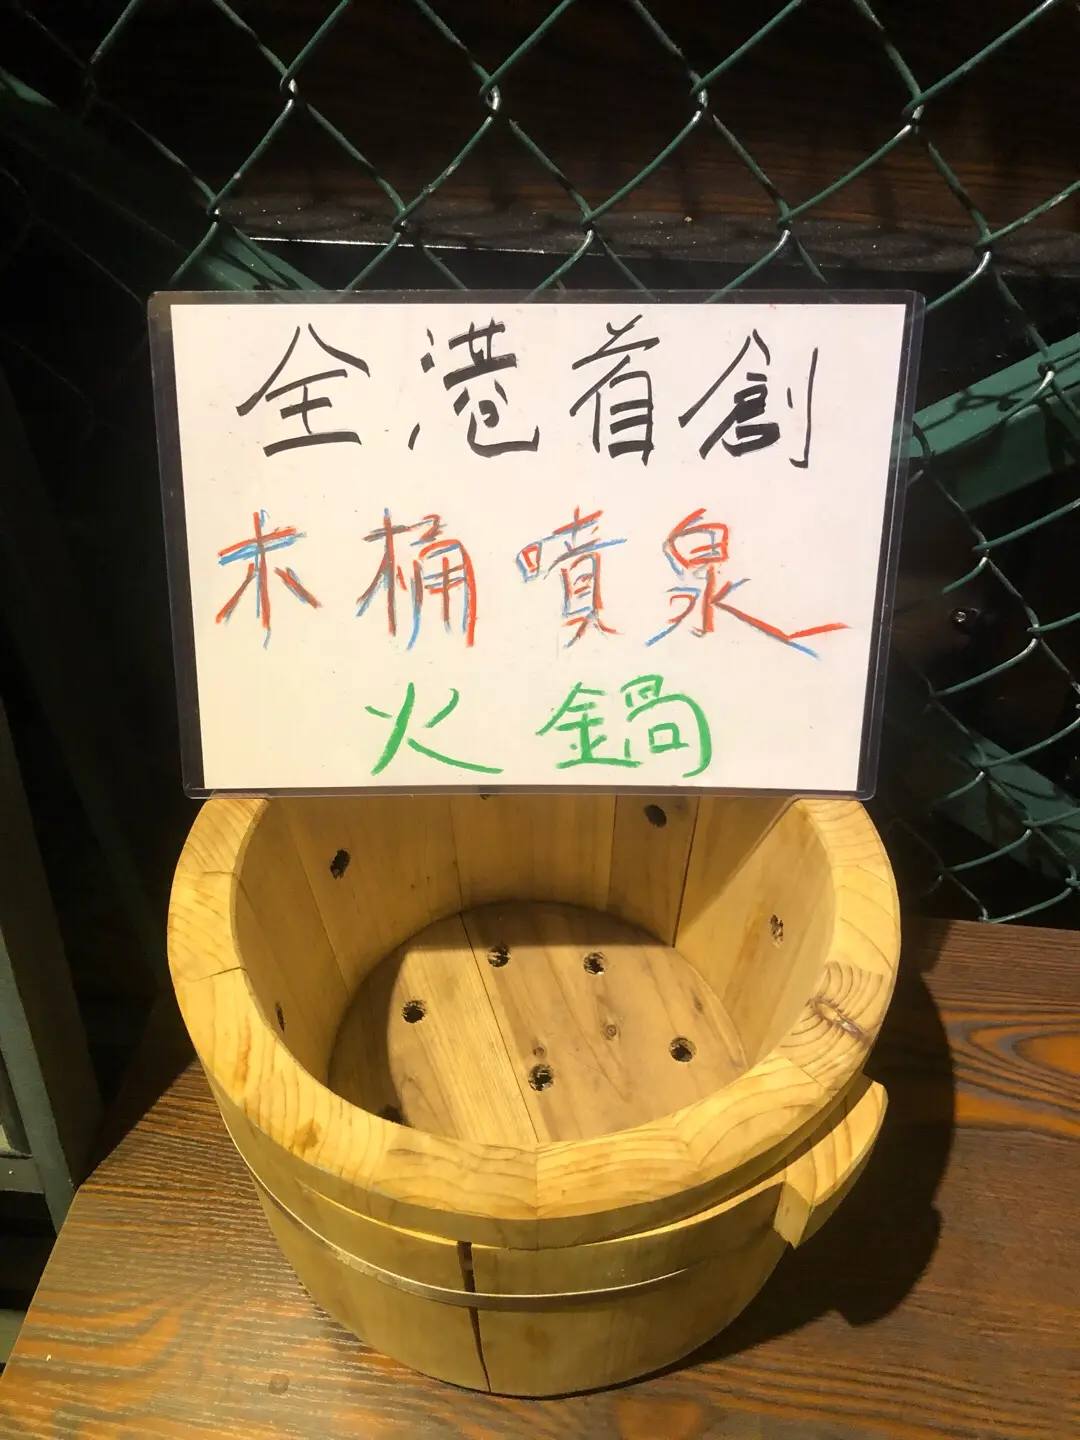 全港首創
木桶噴泉
火鍋